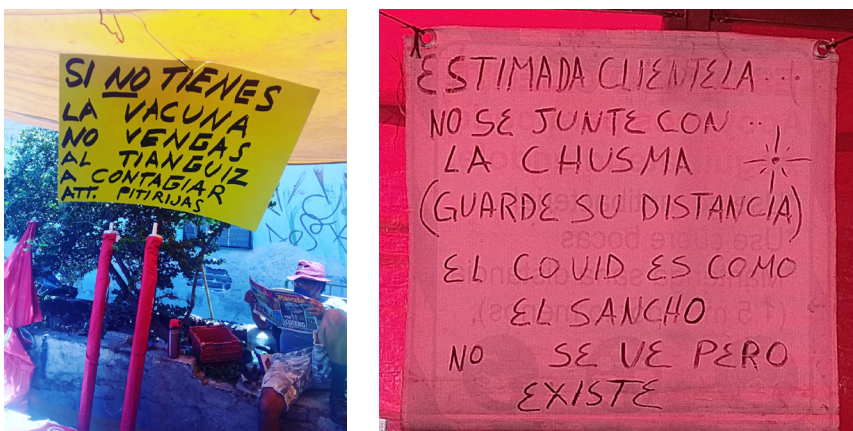 SI NO TIENES
LA VACUNA
NO VENGAS
AL TIANGUIZ
A CONTAGIAR
ATT. PITIRIJAS
ESTIMADA CLIENTELA...
NO SE JUNTE CON..
LA CHUSMA
(GUARDE SU DISTANCIA)
EL COVID ES COMO
EL SANCHO
NO SE VE PERO
EXISTE